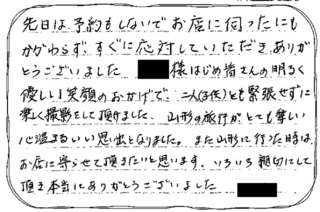 先日は、予約もしないでお店に伺ったにも
かかわらず、すぐに応対していただき、ありが
とうございました
様はじめ皆さんの明るく
優しい笑顔のおかげで、二人(子供)とも緊張せずに
楽しく撮影をして頂きました。山形の旅行がとても楽しい
心温まるいい思い出となりました。また山形に行った時は、
お店に寄らせて頂きたいと思います。いろいろ親切にして
頂き本当にありがとうございました